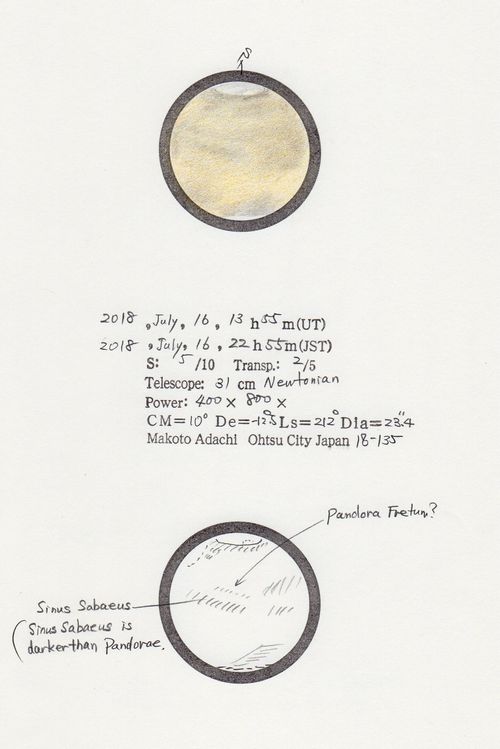 S
2018 , July, 16, 13 h 55 m (UT)
2018 , July, 16, 22 h 55 m (JST)
S: 5 /10 Transp.: 2/5
Telescope: 31 cm Newtonian
Power: 400 × 800 ×
CM= 10° De= -12.5° Ls= 212° Dia= 23.4"
Makoto Adachi Ohtsu City Japan 18-135
Pandora Fretum?
Sinus Sabaeus
(Sinus Sabaeus is
darker than Pandorae.